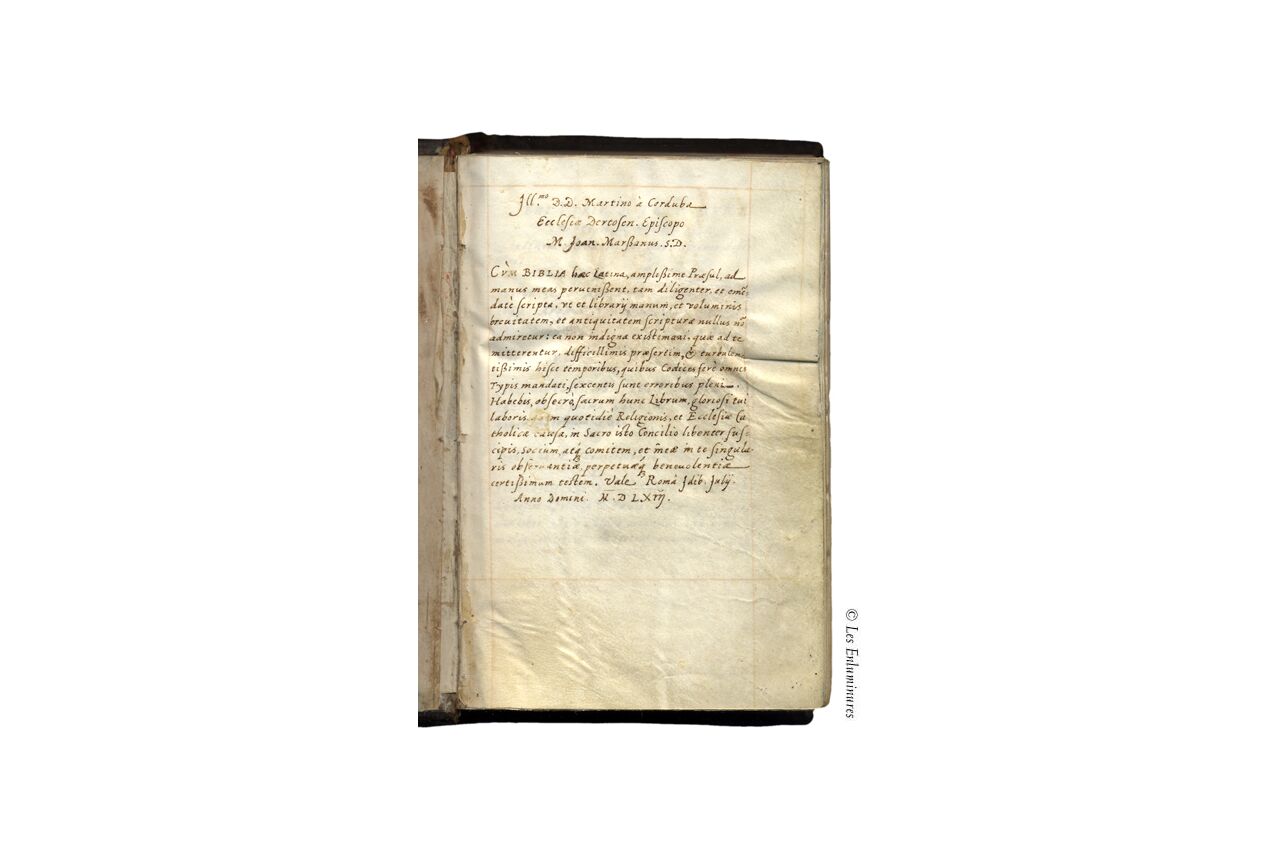 Ill.mo D.D. Martino à Corduba
Ecclesiæ Dertosen. Episcopo
M. Joan. Marßanus. S.D.
CVM BIBLIA hæc Latina, amplißime Præsul, ad
manus meas peruenißent, tam diligenter, et emē-
datè scripta, vt et librarij manum, et voluminis
breuitatem, et antiquitatem scripturæ nullus nō
admiretur: ea non indigna existimaui, quæ ad te
mitterentur, difficillimis præsertim, & turbulen-
tißimis hisce temporibus, quibus Codices fere omnes
Typis mandati, sexcentis sunt erroribus pleni.
Habebis, obsecrò, sacrum hunc Librum, gloriosi tui
laboris, quem quotidiè Religionis, et Ecclesiæ Ca
tholicæ causa, in Sacro isto Concilio libenter sus-
cipis, socium, atq comitem, et meæ in te singula-
ris obseruantiæ, perpetuæq beneuolentiæ
certißimum testem. Vale Romæ Idib. Julij.
Anno Domini. M.D LXIIJ.
© Les Enluminures